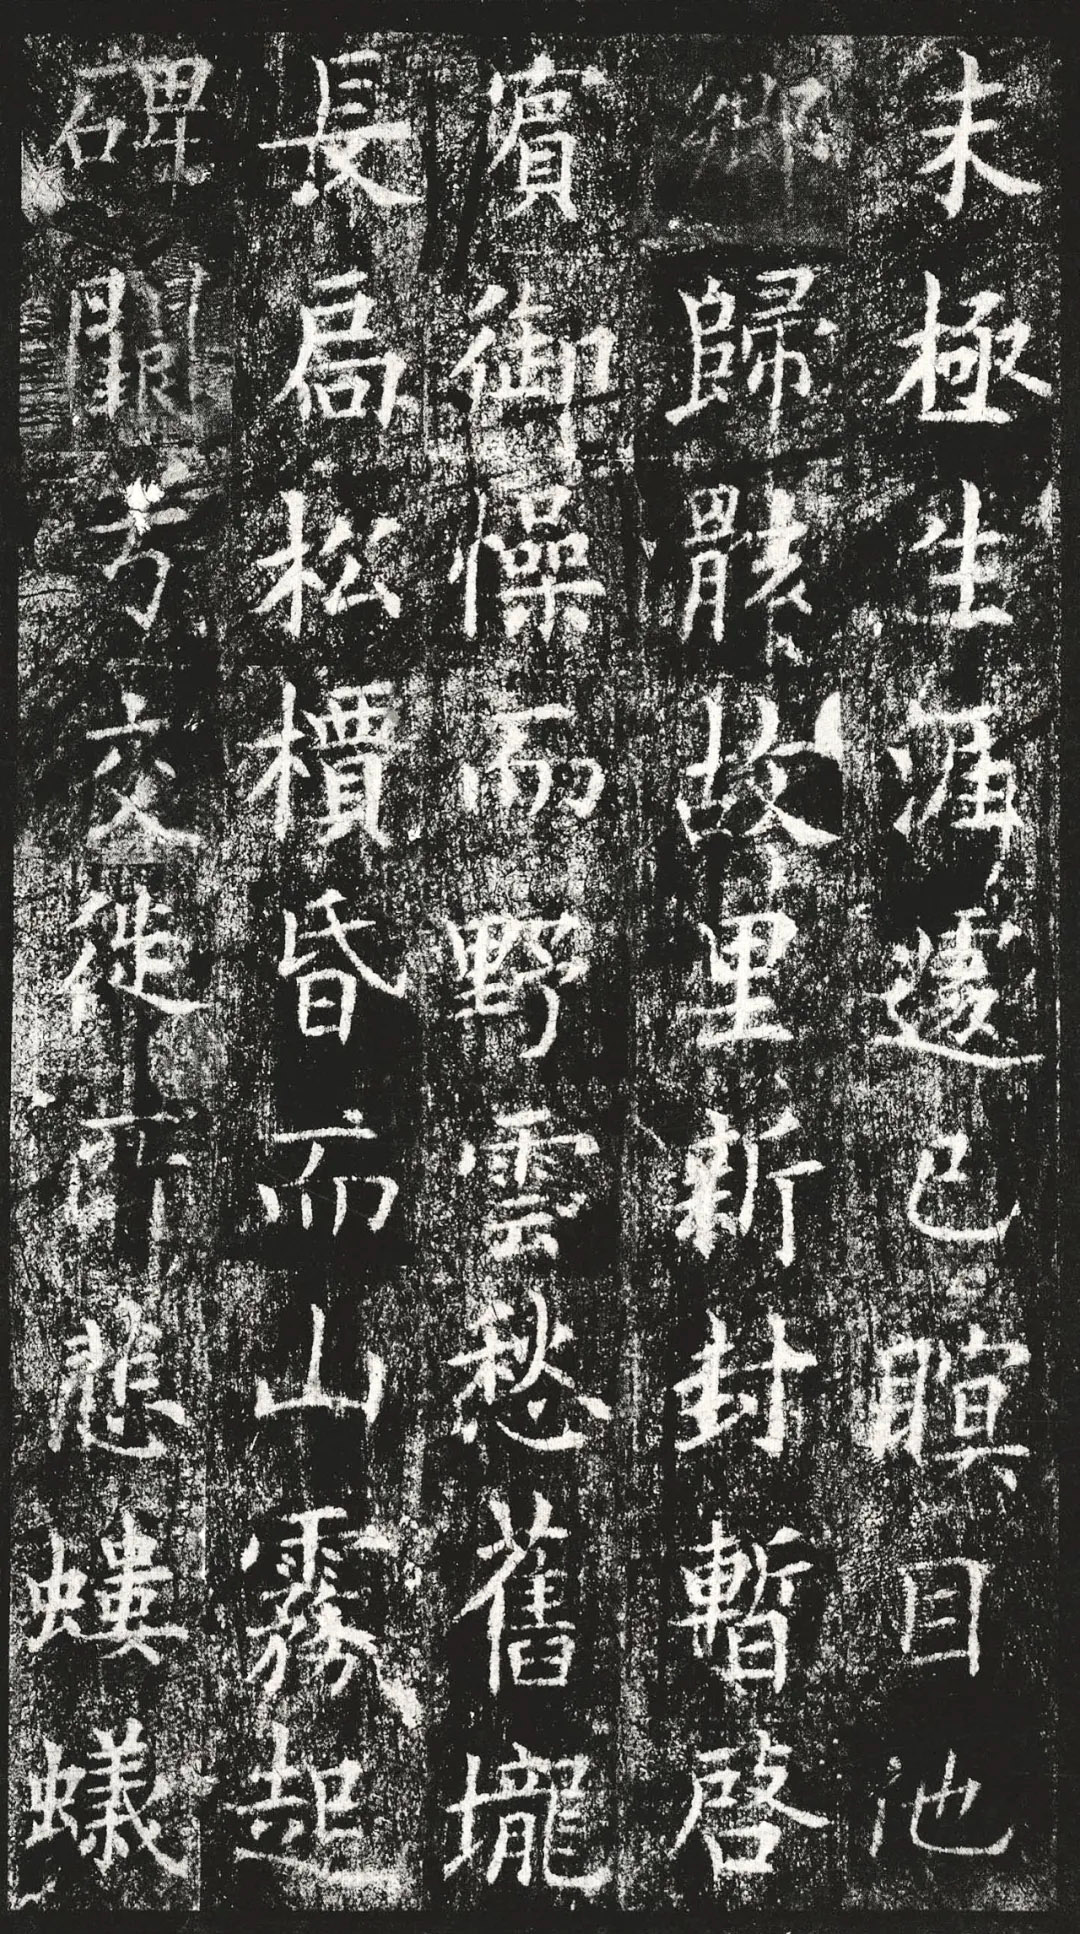 未極生涯遽已瞑目池
鄉歸骸故里新封暫啓
賓御懆而野雲愁舊壠
長扃松檟昏而山霧起
碑方交徙所悲螻蟻